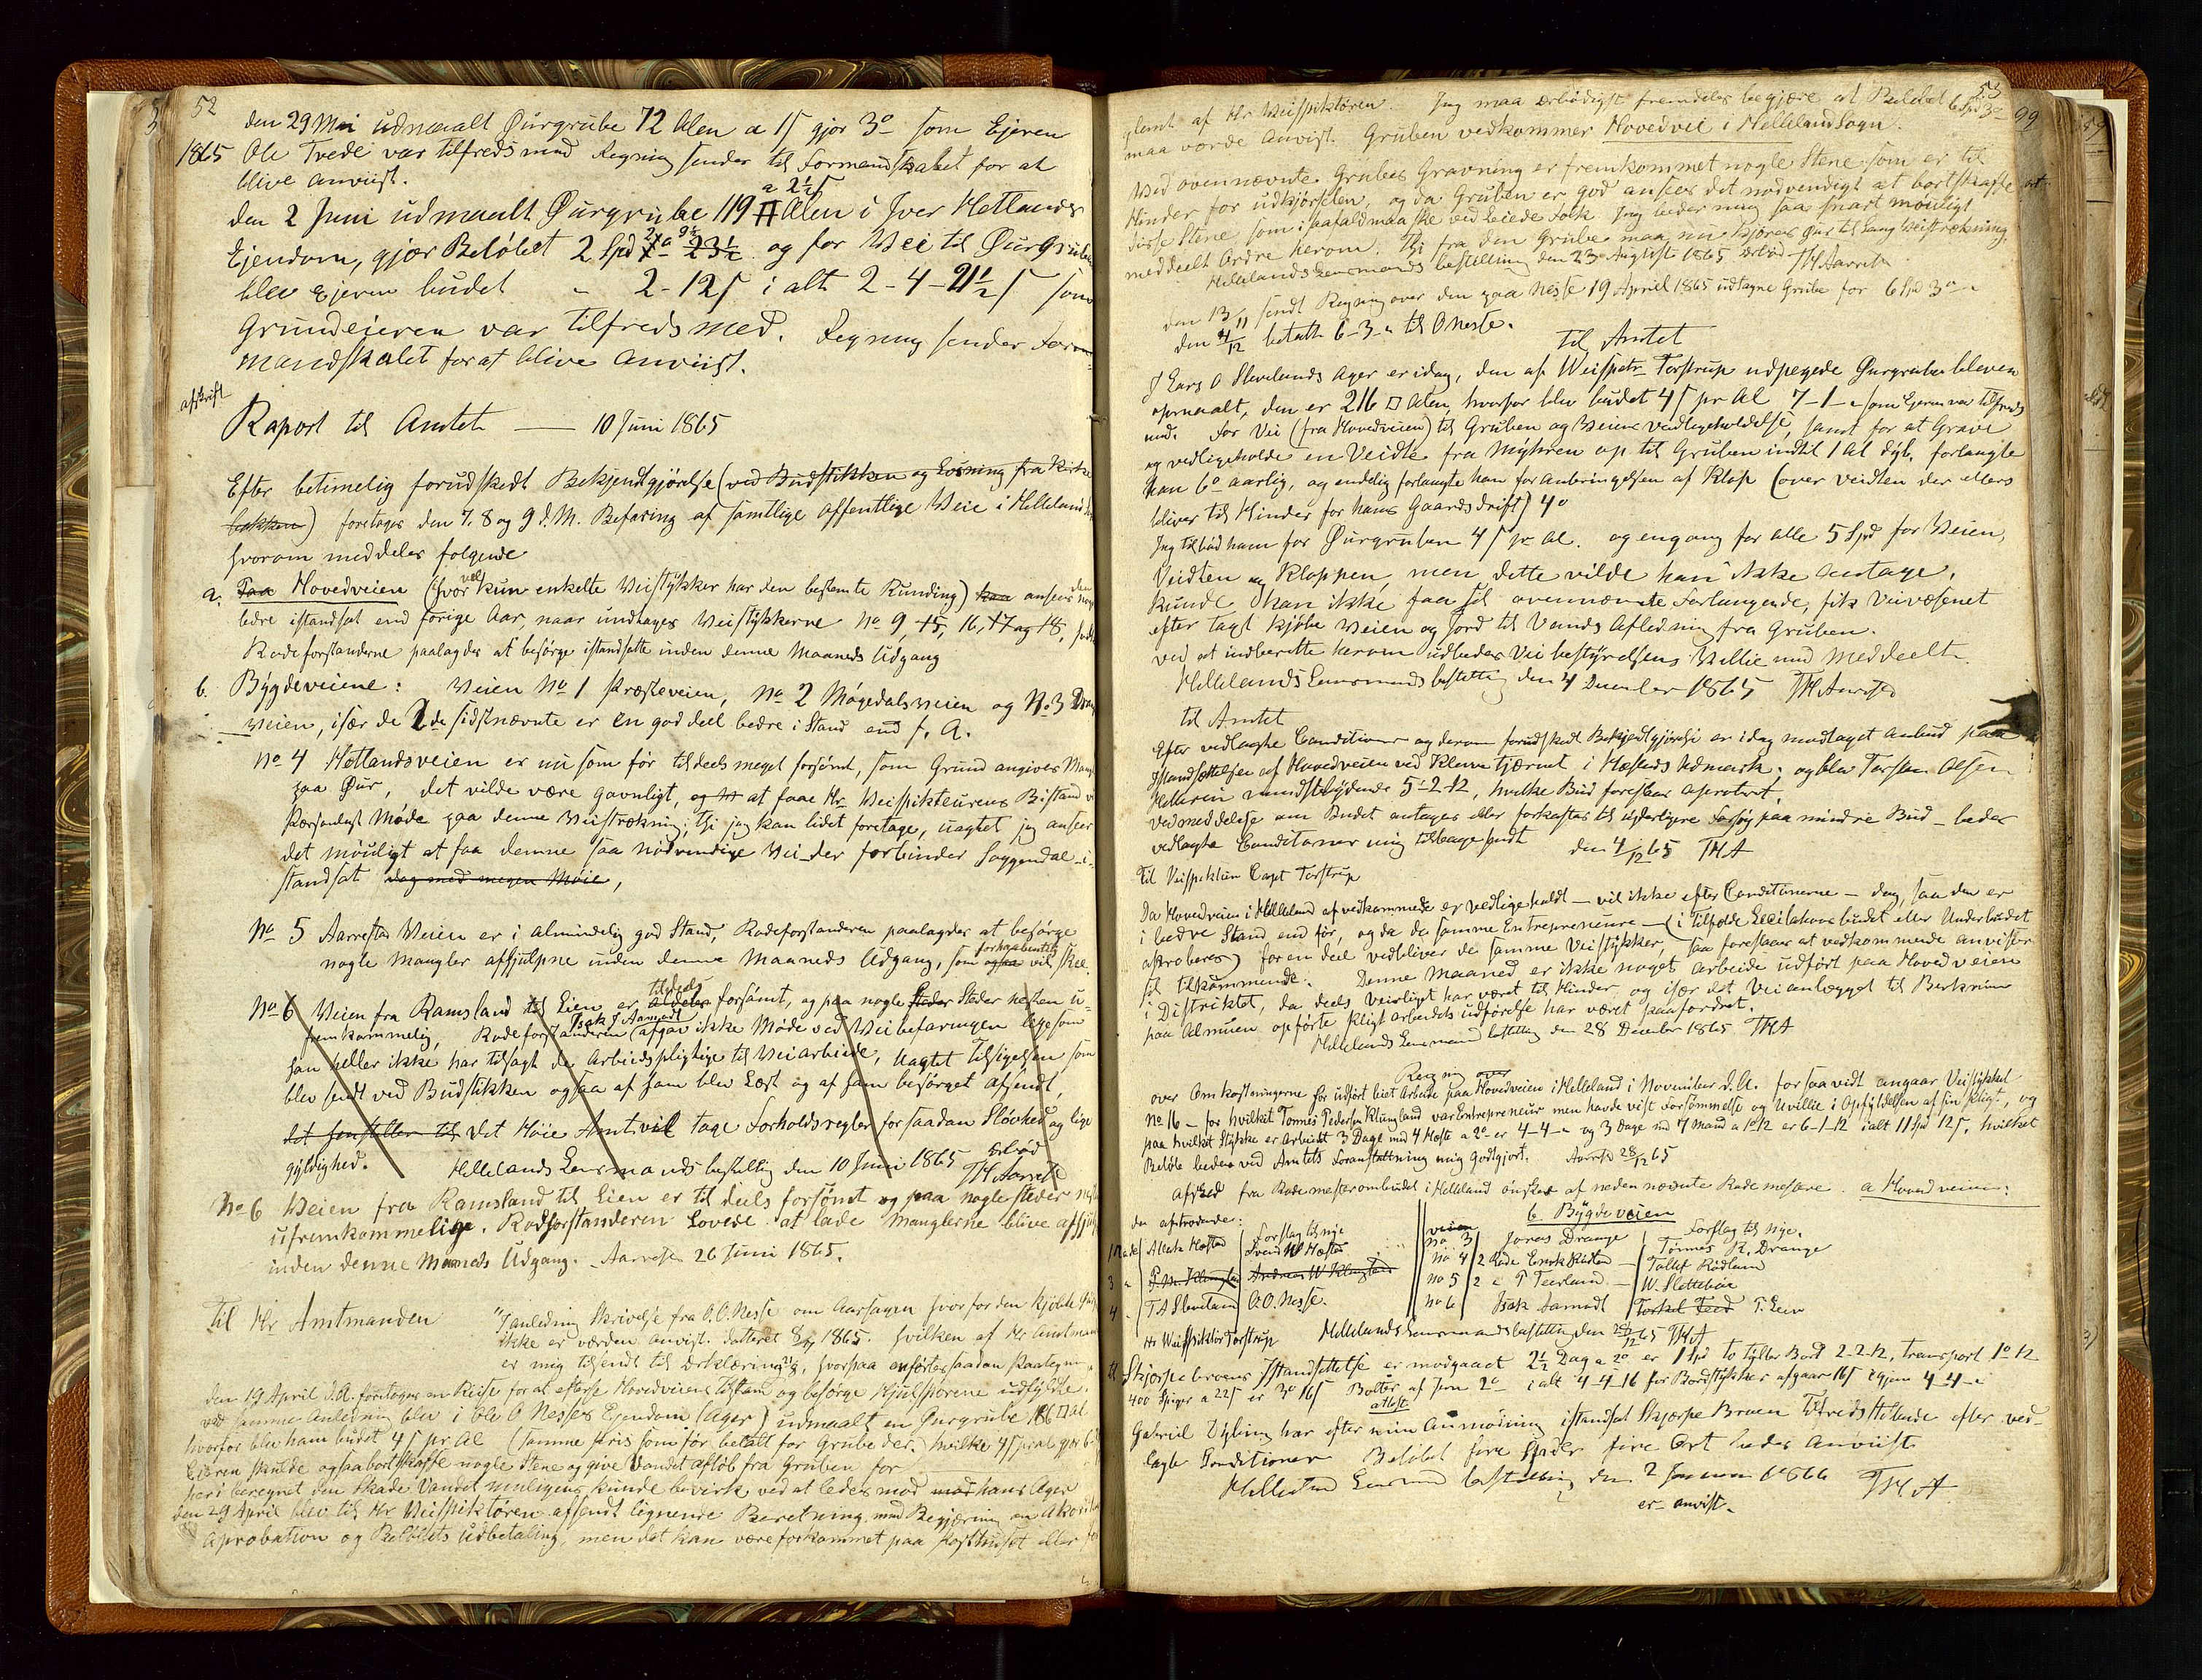 52
den 29 Mai udmaalt Øurgrube 72 Alen a 1 ſ gjør 3º som Ejeren
1865 Ole Tvede var tilfreds med Regning sender til Formandskabet for at
blive anviist.
a 2½ ſ
den 2 Juni udmaalt Øurgrube 119 □ Alen i Iver Hetlands
Ejendom, gjør Beløbet 2 Spd og for Vei til Øurgruben
blev Ejeren budet " 2-12 ſ i alt 2-4-21½ ſ som
Grundeieren var tilfreds med. Regning sender For-
mandskabet for at blive anviist.
afskrift
Raport til Amtet — 10 Juni 1865
Efter betimelig forudskedt Bekjendtgjørelse (ved Budstikken og Læsning fra Kirke
bakken) foretoges den 7. 8 og 9 d. M. Befaring af samtlige offentlige Veie i Helleland
hvorom meddeles følgende
a. Paa Hovedveien (hvor vel kun enkelte Veistykker har den bestemte Runding) kan ansees den
bedre istandsat end forige Aar, naar undtages Veistykkerne No 9, 15, 16, 17 og 18,
Rodeforstanderne paalagdes at besørge istandsatte inden denne Maaneds Udgang
b. Bygdeveiene: Veien No 1 Præsteveien, No 2 Møgedalsveien og No 3 Drange
veien, især de 2de sidstnævnte er en god deel bedre i Stand end f. A.
No 4 Hetlandsveien er nu som før tildeels meget forsømt, som Grund angives Mangel
paa Øur, det vilde være gavnligt, at faae Hr Veispikteurens Bistand v
Personligt Møde paa denne Veistrækning; thi jeg kan lidet foretage, uagtet jeg anseer
det mouligt at faa denne saa nødvendige Vei der forbinder Soggendal i-
standsat dog med megen Møie,
No 5 Aarrestad Veien er i Almindelig god Stand, Rodeforstanderen paalagdes at besørge
nogle Mangler afhjulpne inden denne Maaneds Udgang, som forhaabentlig vil skee.
No 6 Veien fra Ramsland til Eien er tildeels forsømt, og paa nogle Steder Steder nesten u-
fremkommelig, Rodeforstanderen Isak J Aamodt afgav ikke Møde ved Veibefaringen ligesom
han heller ikke har tilsagt de Arbeidspligtige til Veiarbeide, uagtet Tilsigelsen som
blev sendt ved Budstikken ogsaa af ham blev Læst og af ham besørget afsendt,
det henstilles til det Høie Amt vil tage Forholdsregler for saadan Sløvhed og lige
gyldighed. Hellelands Lensmandsbestilling den 10 Juni 1865 Ærbød
TH Aarrestad
No 6 Veien fra Ramsland til Eien er til deels forsømt og paa nogle steder
ufremkommelige. Rodforstanderen Lovede at lade Manglerne blive afhjul
inden denne Maaneds Udgang. Aarrestad 26 Juni 1865.
Til Hr Amtmanden "I anledning Skrivelse fra O. O. Nesse om Aarsagen hvorfor den kjøbte
ikke er vorden anvist. Datteret 1865. hvilken af Hr Amtmand
er mig tilsendt til Ærklæring, hvorpaa anførtes saadan Paategning
den 19 April d. A. foretoges en Reise for at efterse Hovedveiens Tilstand og besørge Hjulsporene udfyldte.
ved samme Anledning blev i Ole O Nesses Ejendom (Ager) udmaalt en Øurgrube 186 □ Al
hvorfor blev ham budet 4 ſ pr Al (samme Pris som før betalt for Grube der.) hvilke 4 ſ pr al gjør
Ejeren skulde ogsaa bortskaffe nogle Stene og give Vandet afløb fra Gruben for
heri beregnet den Skade Vandet muligens kunde bevirke ved at ledes mod hans Ager
den 29 April blev til Hr Veispiktøren afsendt lignende Beretning med Begjæring om Akordens
Aprobation og Beløbets Udbetaling, men det kan være forkommet paa Posthuset eller
53
99
glemt af Hr Veispiktøren. Jeg maa ærbødigst fremdeles begjære at Beløbet 6 Spd 3º
maa vorde Anvist. Gruben vedkommer Hovedvei i Helleland Sogn.
Ved ovennævnte Grubes Gravning er fremkommet nogle Stene som er til
Hinder for udkjørselen, og da Gruben er god ansees det nødvendigt at bortskaffe
disse Stene som i saafald maa ske ved Leiede Folk. Jeg beder mig saa snart mouligt
meddeelt Ordre herom. thi fra den Grube maa nu kjøres Øur til Lang Veistrækning
Hellelands Lensmands bestilling den 23 August 1865 Ærbød TH Aarrestad
den 13/11 sendt Regning over den paa Nesse 19 April 1865 udtagne Grube for 6 Spd 3º
den 4/12 betalt 6-3-" til O Nesse.
Til Amtet
I Lars O Slevelands Ager er idag, den af Veispetr Torstrup udpegede Øurgrube bleven
opmaalt, den er 216 □ Alen, hvorfor blev budet 4 ſ pr Al 7-1-" som Ejeren var tilfreds
med. For Vei (fra Hovedveien) til Gruben og Veiens vedligeholdelse, samt for at Grave
og vedligeholde en Veidte fra Myhren op til Gruben indtil 1 Al dyb, forlangte
han 6º aarlig, og endelig forlangte han for Anbringelsen af Klop (over veidten der ellers
bliver til Hinder for hans Gaardsdrift) 4º
Jeg tilbød ham for Øurgruben 4 ſ pr Al. og engang for alle 5 Spd for Veien,
Veidten og Kloppen, men dette vilde han ikke antage.
Kunde han ikke faa sit ovennævnte Forlangende, fik Veivæsenet
efter tagt kjøbe Veien og Jord til Vands Afledning fra Gruben.
ved at indberette herom udbedes Vei bestyrelsens Villie mig Meddeelt.
Hellelands Lensmands bestilling den 4 December 1865 TH Aarrestad
til Amtet
Efter vedlagte Conditioner og derom forudskedt Bekjentgjørelse er idag modtaget anbud paa
Istandsættelse af Hovedveien ved Kleven Tjærnet i Hæstads Udmark; og blev Torsten Olsen
Helleren mindstbydende 5-2-12, hvilke Bud foreslaaes Aprobert.
Ved meddelelse om Budet antages eller forkastes til yderligere Forsøg paa mindre Bud – bedes
vedlagte Conditioner mig tilbage sendt den 4/12 65 THA
Til Veispekteur Capt Torstrup
Da Hovedveien i Helleland af vedkommede er vedligeholdt — vel ikke efter Conditionerne — dog saa den er
i bedre Stand end før, og da de samme Entreprenører — (i tilfelde Licitations budet eller Underbudet
aproberes) for en deel vedbliver de samme Veistykker, saa foreslaaes at vedkommende anvises
sit tilkommende. Denne Maaned er ikke noget Arbeide udført paa Hovedveien
i Distriktet, da deels Veirliget har været til Hinder, og især det Veianlægget til Berkrim
paa Almuen opførte Pligtarbeides udførelse har været paafordret.
Hellelands Lensmands bestilling den 28 December 1865 THA
Regning over
over Omkostningerne for udført leiet Arbeide paa Hovedveien i Helleland i November d. A. forsaavidt angaar Veistykket
No 16 – for hvilket Tørnes Pedersen Klungland var Entrepreneur men havde vist Forsømmelse og Uvillie i Opfyldelsen af sin Pligt, og
paa hvilket Stykke er Arbeidt 3 Dage med 4 Heste a 2º er 4-4-" og 3 dage med 7 Mand a 1º12 er 6-1-12 ialt 11 Spd 12 ſ, hvilket
Beløb bedes ved Amtets Foranstaltning mig Godtgjort. Aarrestad 28/12 65
Afsked fra Rodemesterombudet i Helleland ønskes af neden nævnte Rodemestere. a Hovedveien:
de aftrædende: Forslag til nye b. Bygdeveien Forslag til nye.
Svend Hæstad veien No 3 Jonas Drange Tørnes K. Drange
No 4 2 Rode Tollef Ridland
3 " Andreas W Klungland No 5 2 " P Teerland — W. Slettebøe
4 " T A Sleveland O. O. Nesse. No 6 Isak Aamodt T. Eien
Hellelands Lensmandsbestilling den 28/12 65 THA
Hr Veispiktør Torstrup
til Skjørpebroens Istandsættelse er medgaaet 2½ Dag a 2º er 1 Spd to Tylter Bord 2-2-12, transport 1º-12
400 Spiger a 22 ſ er 3º 16 ſ Bolter af Jern 2º ialt 4-4-16 for Bordstykker afgaar 16 ſ igjen 4-4-"
attest
Gabriel Dybing har efter min Anmodning istandsat Skjørpe Broen Tilfredsstilende efter ved-
lagte Konditioner Beløbet fire Spader fire Ort bedes Anviist
Helleland Lensmand bestilling den 2 Januar 1866 TH A
er anvist.